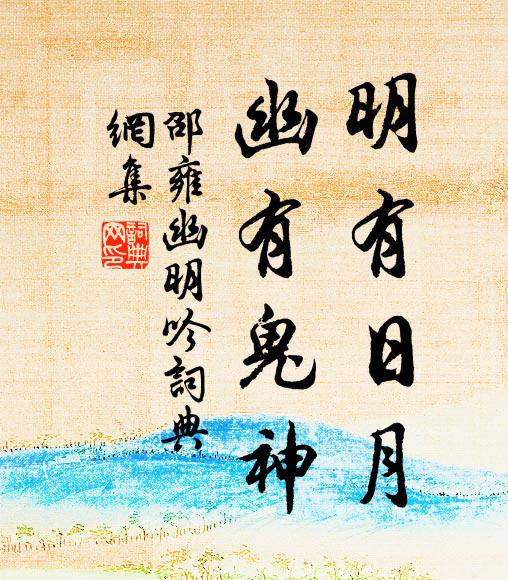 明有日月
幽有鬼神
邵雍幽明吟詞典
網集
詞典
网印